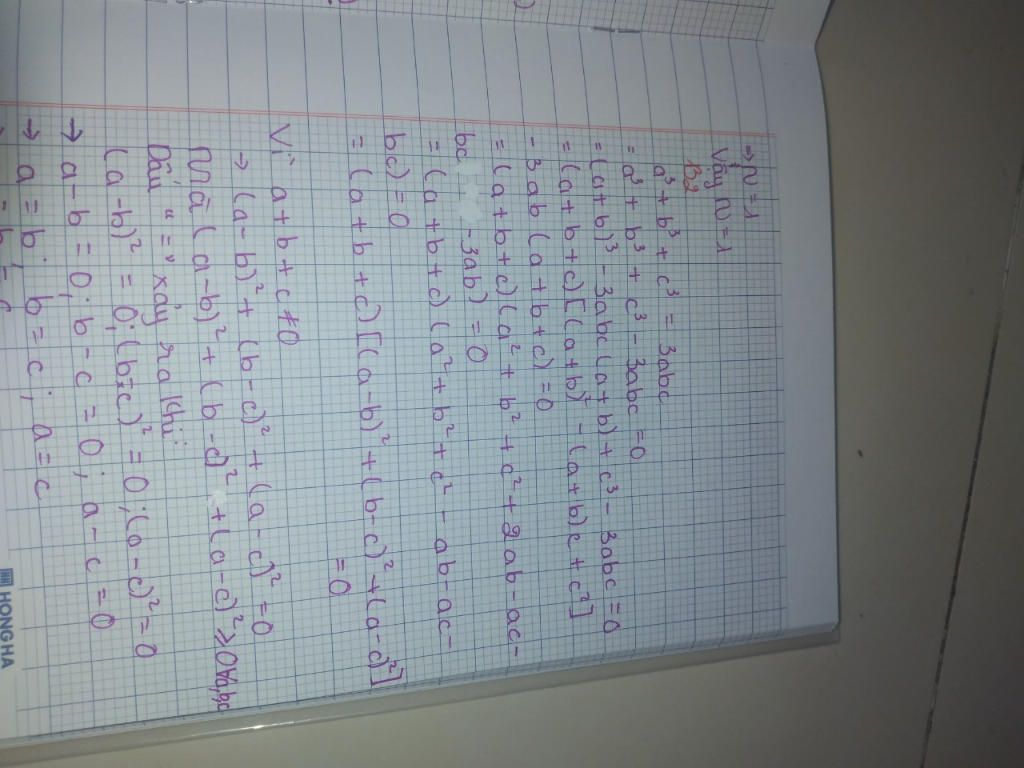 → n = 1
Vậy n = 1
B2
a³ + b³ + c³ = 3abc
= a³ + b³ + c³ - 3abc = 0
= (a + b)³ - 3abc (a + b) + c³ - 3abc = 0
= (a + b + c) [(a + b)² - (a + b)c + c²]
- 3ab (a + b + c) = 0
= (a + b + c) (a² + b² + c² + 2ab - ac -
bc - 3ab) = 0
= (a + b + c) (a² + b² + c² - ab - ac -
bc) = 0
= (a + b + c) [(a - b)² + (b - c)² + (a - c)²]
= 0
Vì a + b + c ≠ 0
→ (a - b)² + (b - c)² + (a - c)² = 0
Mà (a - b)² + (b - c)² + (a - c)² ≥ 0 ∀a,b,c
Dấu "=" xảy ra khi:
(a - b)² = 0; (b - c)² = 0; (a - c)² = 0
→ a - b = 0; b - c = 0; a - c = 0
→ a = b; b = c; a = c
HONG HA